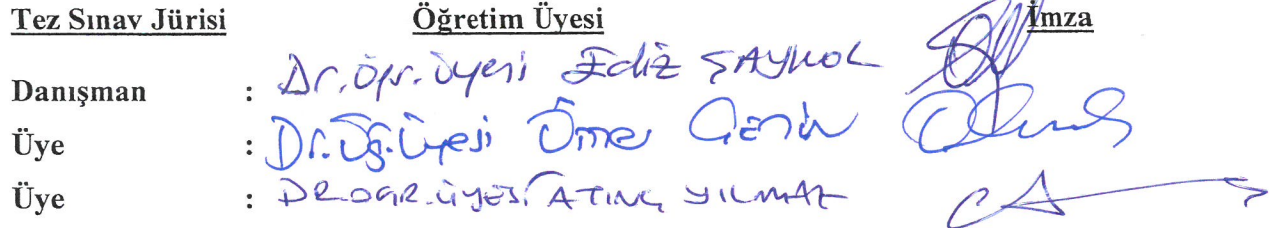 Tez Sınav Jürisi Öğretim Üyesi İmza
Danışman : Dr. Öğr. Üyesi Ediz ŞAYKOL
Üye : Dr. Öğ. Üyesi Ömer ÇETİN
Üye : DR. OGR. ÜYESİ ATINÇ YILMAZ